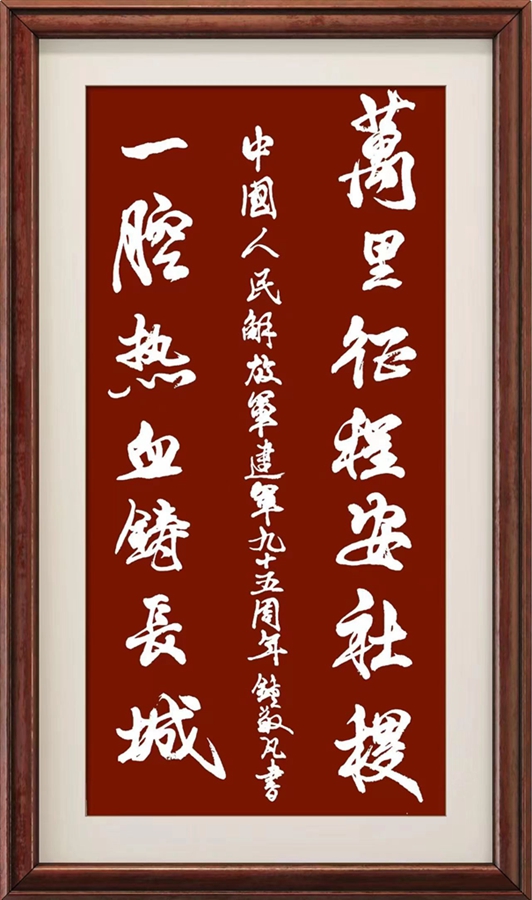 萬里征程安社稷
中國人民解放軍建軍九十五周年鐘敬凡書
一腔热血鑄長城